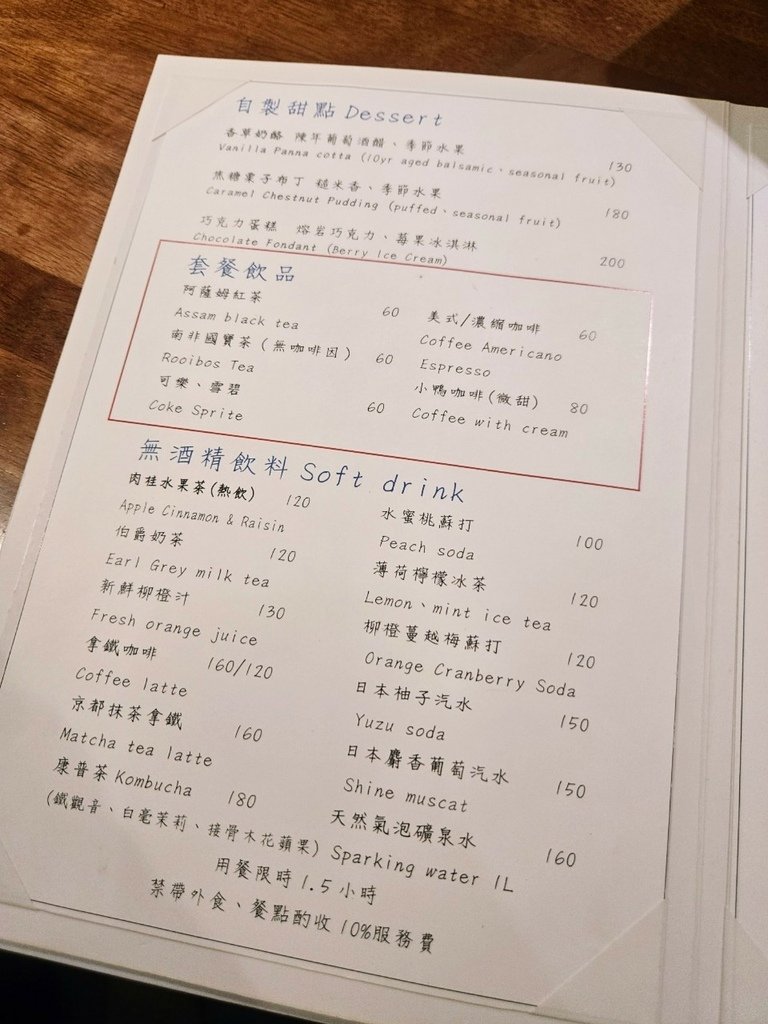 自製甜點 Dessert
香草奶酪 陳年葡萄酒醋、季節水果
Vanilla Panna cotta (10yr aged balsamic、seasonal fruit) 130
焦糖栗子布丁 糙米香、季節水果
Caramel Chestnut Pudding (puffed、seasonal fruit) 180
巧克力蛋糕 熔岩巧克力、莓果冰淇淋
Chocolate Fondant (Berry Ice Cream) 200
套餐飲品
阿薩姆紅茶 60
Assam black tea
南非國寶茶(無咖啡因) 60
Rooibos Tea
可樂、雪碧
Coke Sprite 60
美式/濃縮咖啡 60
Coffee Americano
Espresso
小鴨咖啡(微甜) 80
Coffee with cream
無酒精飲料 Soft drink
肉桂水果茶(熱飲) 120
Apple Cinnamon & Raisin
伯爵奶茶 120
Earl Grey milk tea
新鮮柳橙汁 130
Fresh orange juice
拿鐵咖啡 160/120
Coffee latte
京都抹茶拿鐵 160
Matcha tea latte
康普茶 Kombucha 180
(鐵觀音、白毫茉莉、接骨木花蘋果)
水蜜桃蘇打 100
Peach soda
薄荷檸檬冰茶 120
Lemon、mint ice tea
柳橙蔓越梅蘇打 120
Orange Cranberry Soda
日本柚子汽水 150
Yuzu soda
日本麝香葡萄汽水 150
Shine muscat
天然氣泡礦泉水 160
Sparking water 1L
用餐限時 1.5 小時
禁帶外食、餐點酌收 10%服務費